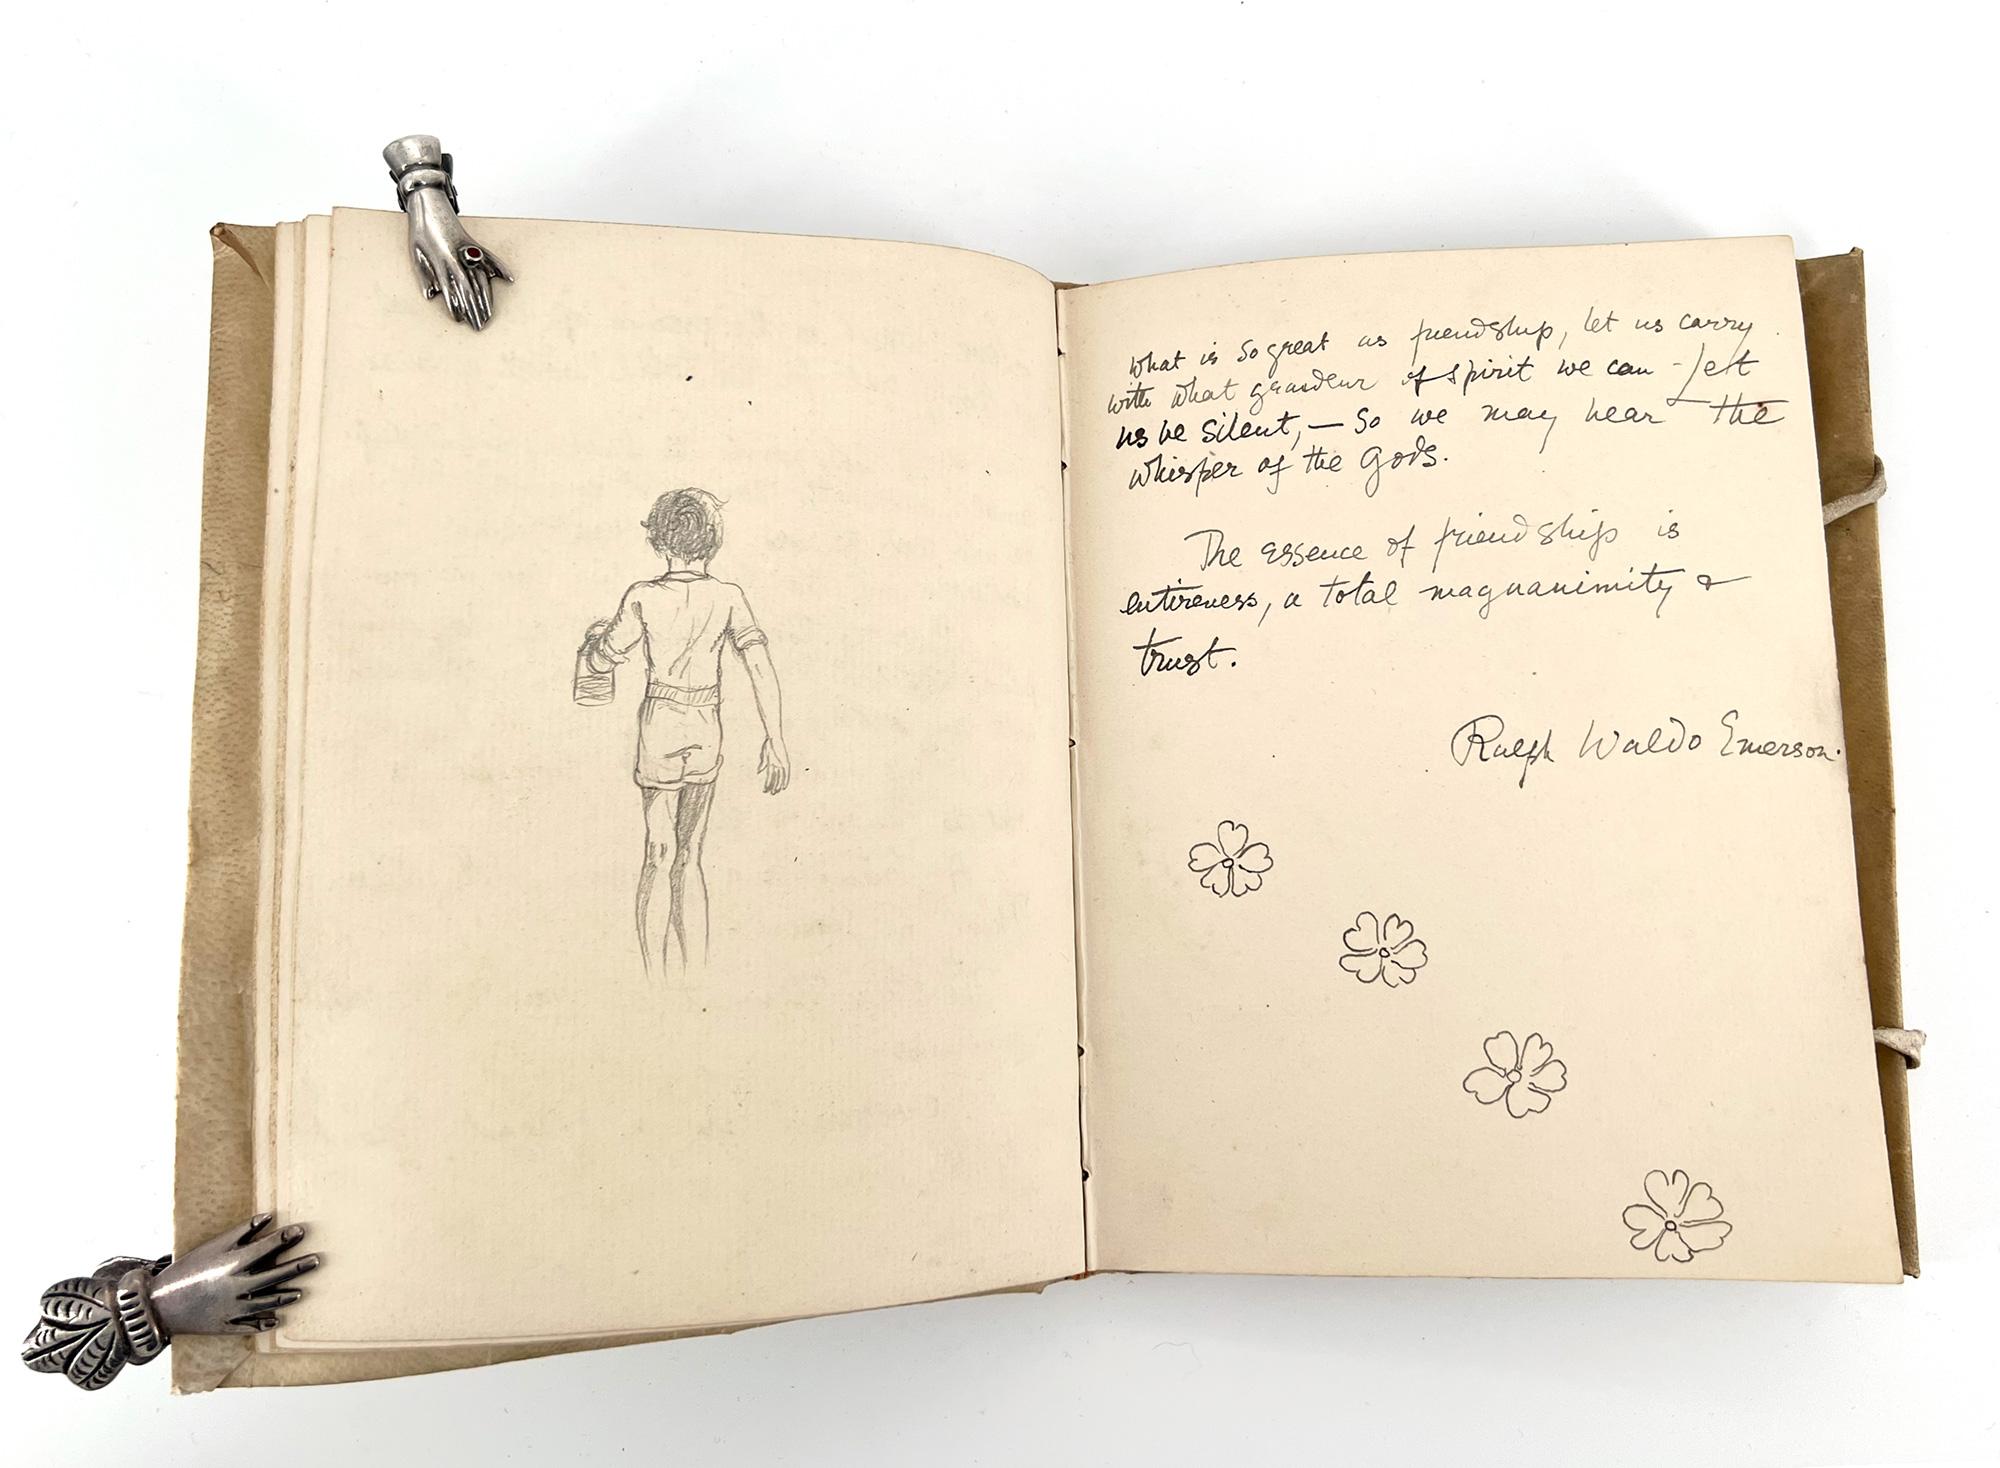 What is so great as friendship, let us carry
with what grandeur of spirit we can - Let
us be silent, — So we may hear the
whisper of the Gods.
The essence of friendship is
entireness, a total magnanimity &
trust.
Ralph Waldo Emerson.